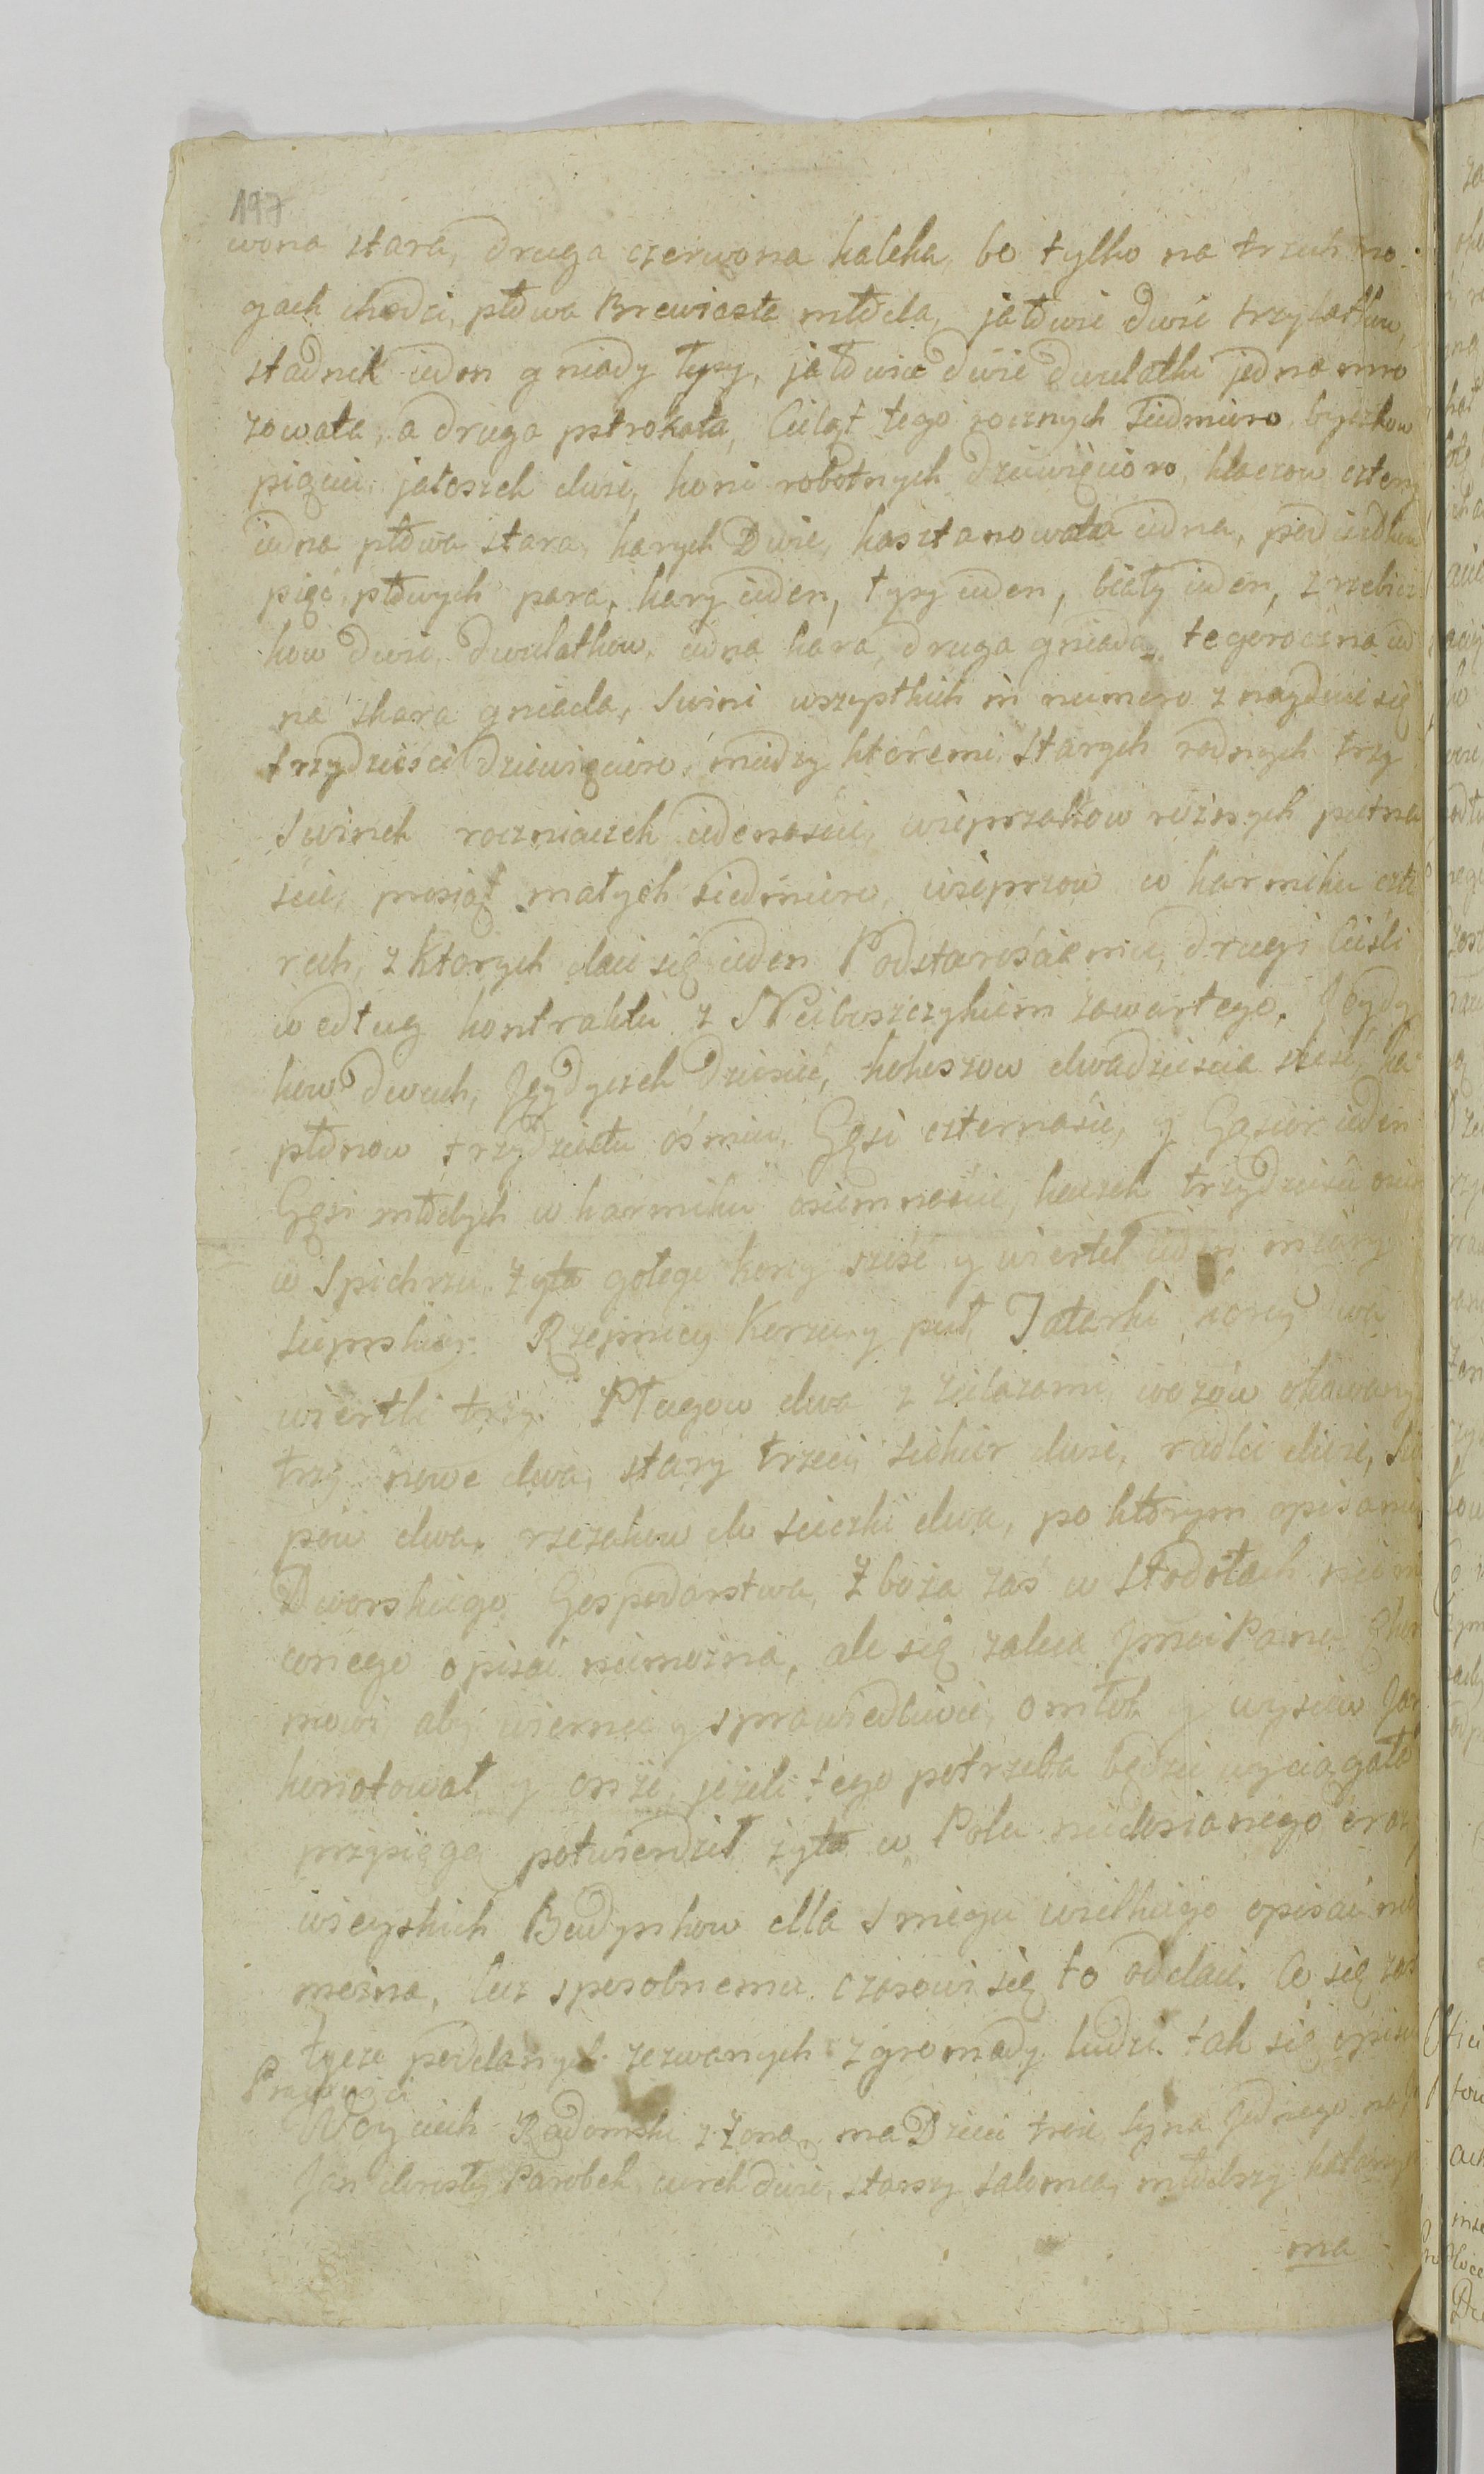 197
wona stara, druga czerwona kaleka, bo tylko na trzech no-
gach chodzi, płowa Brewiasta młoda, jałowie dwie trzylatkow,
stadnik ieden gniady łysy, jałowice dwie dwulatki jedna mro
zowata, a druga pstrokata, Cieląt tego rocznych siedmioro byczkow
pięciu, jałoszek dwie, koni robotnych dziewięcioro, klaczow cztery
iedna płowa stara, karych Dwie, kasztanowata iedna, podiezdkow
pięć, płowych para, kary ieden, łysy ieden, biały ieden, zrzebicz
kow dwie dwulatkow, iedna kara, druga gniada, tegoroczna ied
na skara gniada, swini wszystkich in numero znayduie się
trzydzieści dziewięcioro, między ktoremi starych rodnych trzy
Swinek roczniaczek iedenaście, wieprzakow roznych pietna
ście, prosiąt małych siedmioro, wieprzow w karmiku czte
rech, z ktorych daie się ieden Podstarościemu, drugi Cieśli
według kontraktu z Nieboszczykiem zawartego. Jeydy
kow dwuch, Jęydyczek dziesięć, kokoszow dwadzieścia sześć, ka
płonow trzydziestu ośmiu, Gęsi czternaście, y Gąsior ieden
Gęsi młodych w karmiku osiemnaście, kaczek trzydzieści osim
w Spichrzu. Zyta gołego korcy sześć y wiertel ieden miary
sierpskiey. Rzepnicy Korzec y puł, Tatarki korcy dwa
wiertli trzy. Pługow dwa z zelazami, wozów okowany
trzy nowe dwa, stary trzeci, siekier dwie, radlic dwie, sie
pow dwa, rzezakow do sieczki dwa, po ktorym opisaniu
Dworskiego Gospodarstwa, Zboza zaś w stodołach niem
conego opisać niemożna, ale się zaleca Jmści Panu
mowi aby wiernie y sprawiedliwie, omłot y wysiew Jar
konotował y onże jeżeli tego potrzeba będzie wyciągała
przysięgą potwierdził żyta w Polu niedosianego oraz
wieyskich Budynkow dla Sniegu wielkiego opisać nie
można, lecz sposobnemu czasowi się to oddaie. Co się zaś
tycze poddanych zezwanych z gromady ludzi tak się opisu
Pracowici
Woyciech Radomski z Zoną, ma Dzieci troie syna Jednego
Jan dorosły Parobek, curek dwie, starszy Salomea, młodszy Katarzy
ma